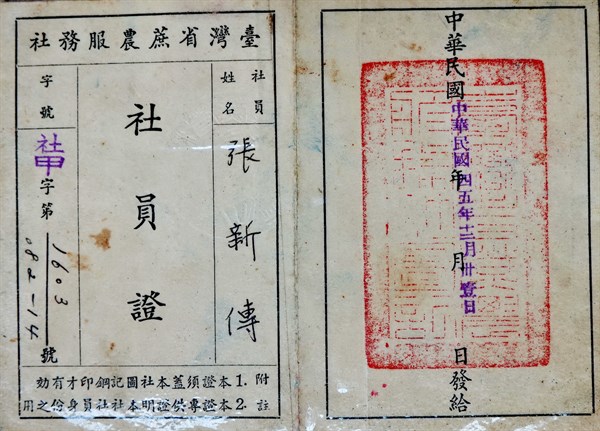 中華民國 年 月 日發給
中華民國四五年十二月卅壹日
臺灣省蔗農服務社
社員姓名
張新傳
社員證
字號
社甲字第1603 082-14號
附註
1.本證須蓋本社圖記鋼印才有効
2.本證專供證明本社社員身份之用